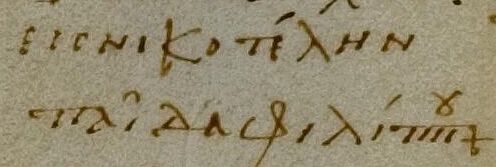 εισ νικοτέλην
παῖδα φιλίππου